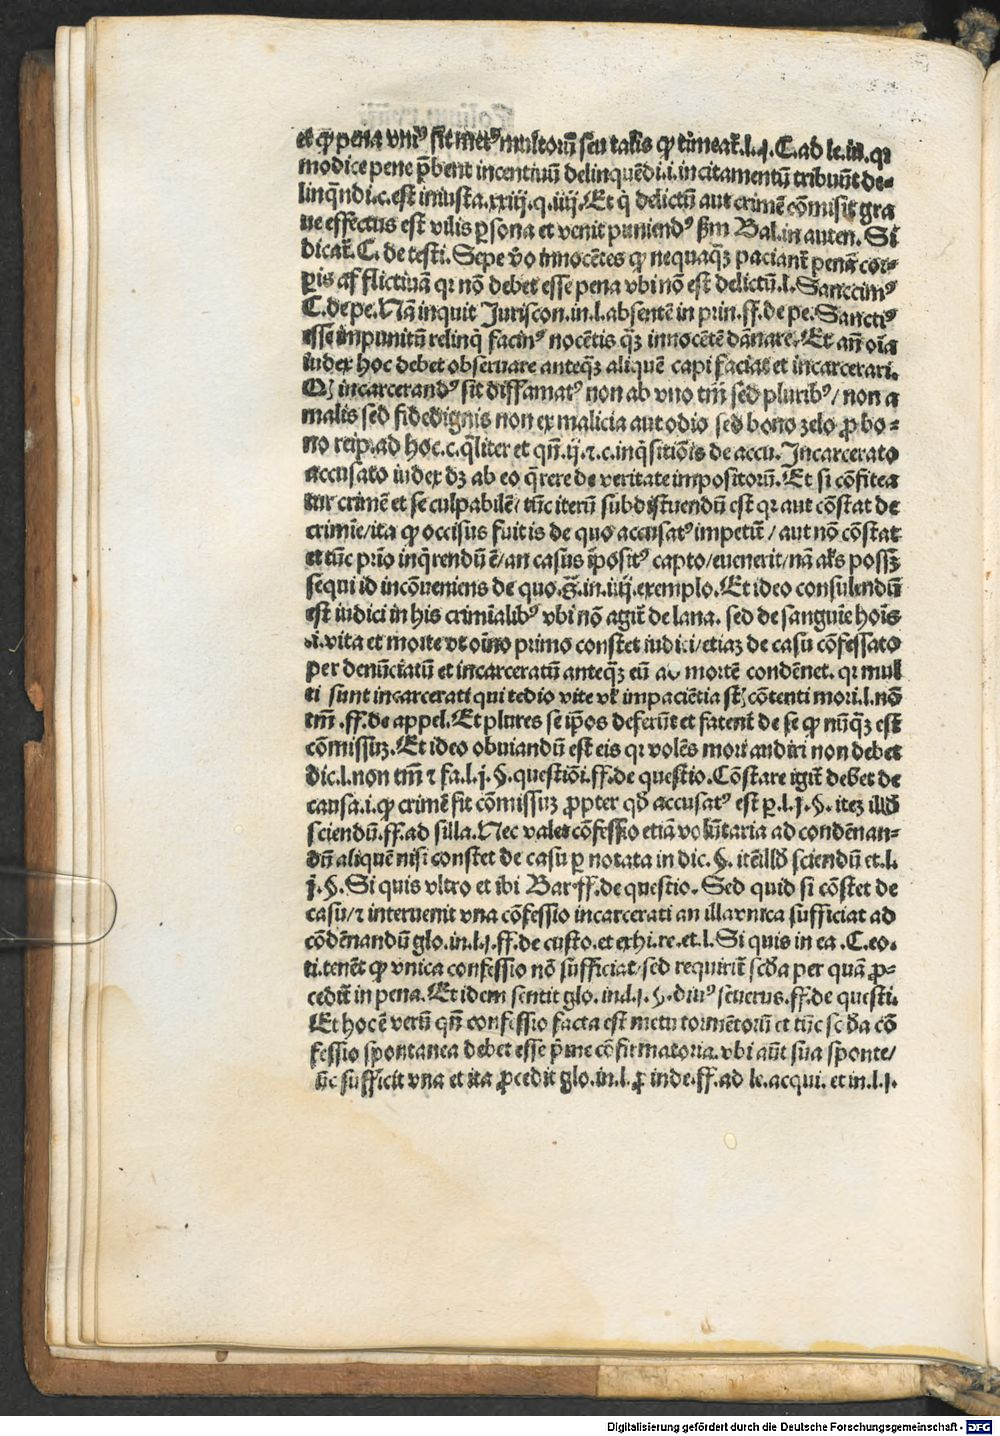 et qꝫ pena vniꝰ sit metꝰ multorū seu talis qꝫ timeat̄.l.j.C.ad le.iu.qꝛ
modice pene p̄bent incentiuū delinquēdi.i.incitamentū tribuūt de-
linqn̄di.c.est iniusta.xxiij.q.iiij. Et q̄ delictū aut crimē cōmisit gra
ue effectus est vilis ꝑsona et venit puniendꝰ ßm Bal.in auten. Si
dicat̄. C. de testi. Sepe v̊o innocētes qꝫ nequaqꝫ paciant̄ penā cor-
ꝑis afflictiuā qꝛ nō debet esse pena vbi nō est delictū.l. Sanccimꝰ
C. de pe. Nā inquit Jurisc̄on.in.l.absentē in prin.ff.de pe. Sanctiꝰ
esse impunitū relinq̄ facinꝰ nocētis qꝫ innocētē dānare. Et añ oīa
iudex hoc debet obseruare anteqꝫ aliquē capi faciat et incarcerari.
Qꝫ incarcerandꝰ sit diffamatꝰ non ab vno tm̄ sed pluribꝰ/ non a
malis sed fidedignis non ex malicia aut odio sed bono zelo ꝓ bo-
no reip̄.ad hoc.c.q̄liter et qn̄.ij.⁊.c.inq̄sitiōis de accu. Incarcerato
accusato iudex dꝫ ab eo q̄rere de veritate impositorū. Et si cōfitea
tur crimē et se culpabilē/ tūc iterū subdistuendū est qꝛ aut cōstat de
crimīe/ita qꝫ occisus fuit is de quo accusatꝰ impetit̄ / aut nō cōstat
et tūc prīo inq̄rendū ē/an casus īpositꝰ capto/euenerit/nā al's possꝫ
sequi id incōueniens de quo.s̄.in.iiij.exemplo. Et ideo consulendū
est iudici in his crimīalibꝰ vbi nō agit̄ de lana. sed de sanguīe hoīs
.i.vita et morte vt oīno primo constet iudici/etiaꝫ de casu cōfessato
per denūciatū et incarceratū anteqꝫ eū ad mortē condēnet. qꝛ mul
ti sunt incarcerati qui tedio vite vl' impaciētia st̄ cōtenti mori.l.nō
tm̄ .ff.de appel. Et plures se ip̄os deferūt et fatent̄ de se qꝫ nūqꝫ est
cōmissuꝫ. Et ideo obuiandū est eis qꝛ volēs mori audiri non debet
dic.l.non tm̄ ⁊ fa.l.j.§.questiōi.ff.de questio. Cōstare igit̄ debet de
causa.i.qꝫ crimē sit cōmissuꝫ ꝓpter qd̄ accusatꝰ est ꝑ.l.j.§. iteꝫ illd̄
sciendū.ff.ad silla. Nec valet cōfessio etiā volūtaria ad condēnan-
dū aliquē nisi constet de casu ꝑ notata in dic. §. itē illd̄ sciendū et.l.
j.§. Si quis vltro et ibi Bar.ff.de questio. Sed quid si cōstet de
casu/⁊ interuenit vna cōfessio incarcerati an illa vnica sufficiat ad
cōdēnandū glo.in.l.j.ff.de custo.et exhi.re.et.l. Si quis in ea. C.eo.
ti.tenēt qꝫ vnica confessio nō sufficiat/sed requirit̄ sc̄da per quā ꝓ-
cedit̄ in pena. Et idem sentit glo. in.l.j.§. diuꝰ seuerus.ff.de questi.
Et hoc ē verū qn̄ confessio facta est metu tormētorū et tūc sc̄da cō
fessio spontanea debet esse p̄me cōfirmatoria.vbi aūt sua sponte/
tūc sufficit vna et ita ꝓcedit glo.in.l. ꝓ inde.ff.ad le.acqui. et in.l.j.
Digitalisierung gefördert durch die Deutsche Forschungsgemeinschaft - DFG